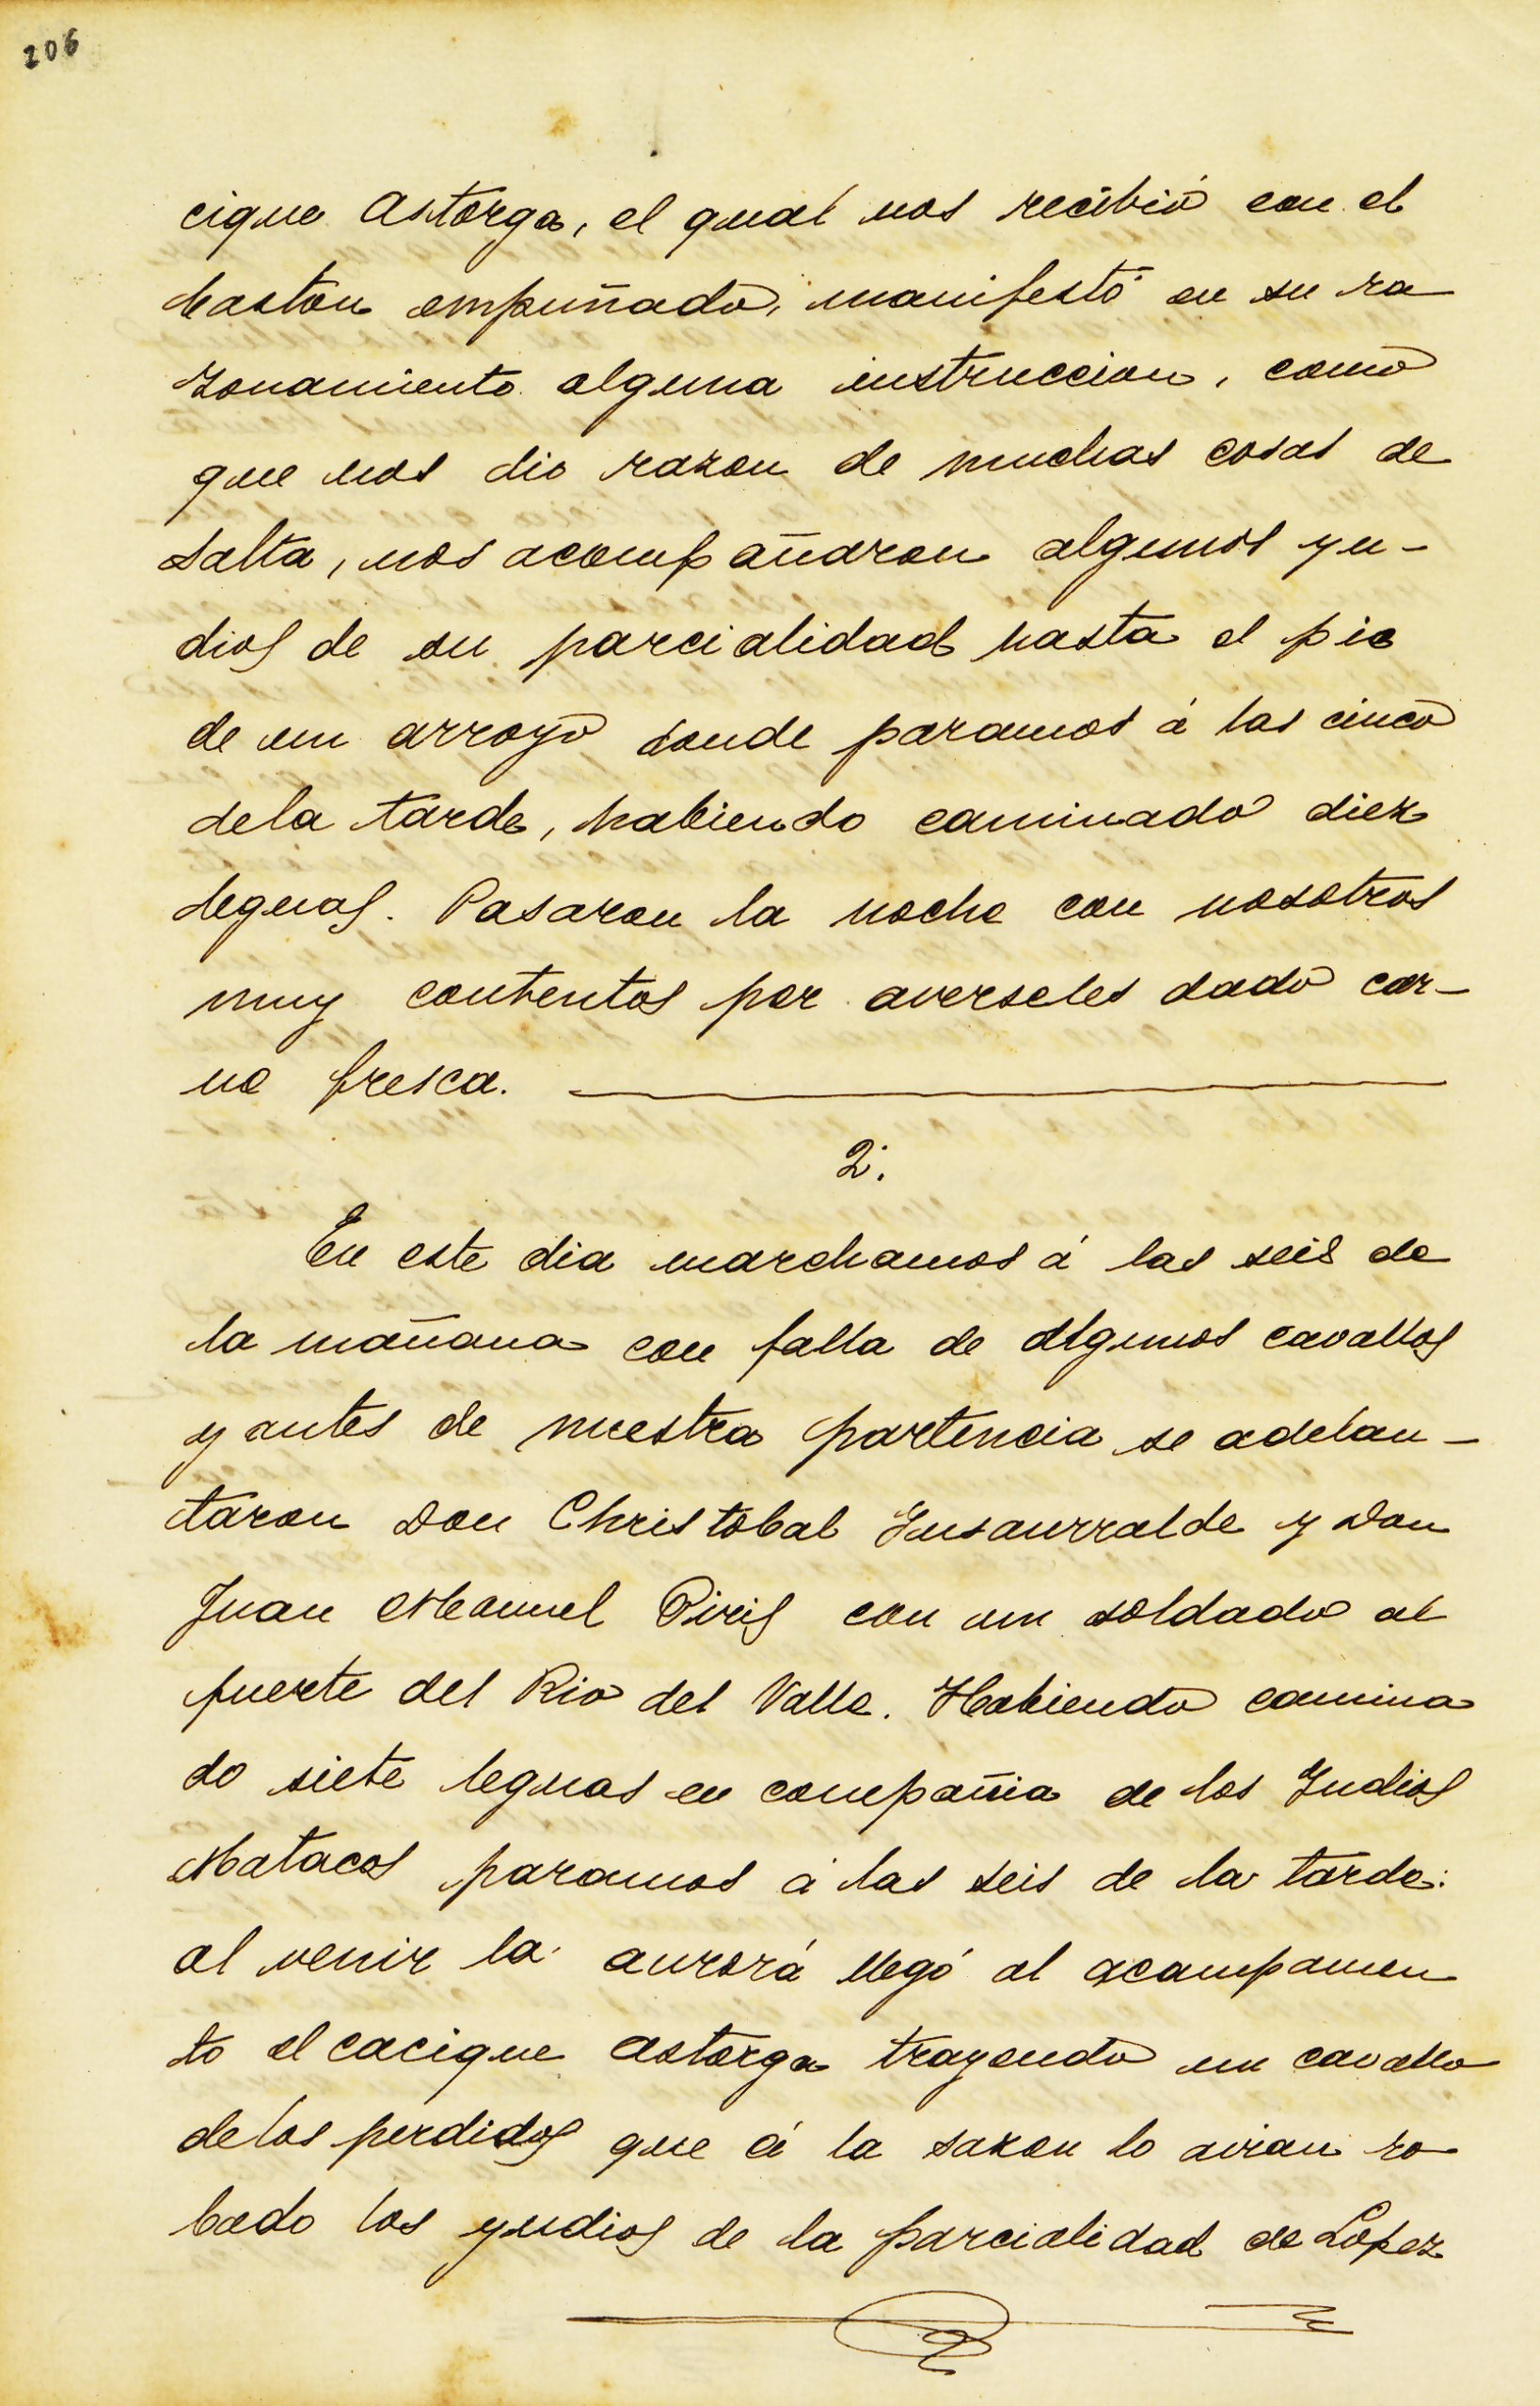 206
cique Astorga, el qual nos recibió con el
baston empuñado, manifestó en su ra
zonamiento alguna instruccion, como
que nos dio razon de muchas cosas de
Salta, nos acompañaron algunos yn-
dios de su parcialidad hasta el pie
de un arroyo donde paramos á las cinco
dela tarde, habiendo caminado diez
leguas. Pasaron la noche con nosotros
muy contentos por averseles dado car-
ne fresca.
2.
En este dia marchamos á las seis de
la mañana con falta de algunos cavallos
y antes de nuestra partencia se adelan-
taron Don Christobal Insaurralde y Don
Juan Manuel Piris con un soldado al
fuerte del Rio del Valle. Habiendo camina
do siete leguas en compañia de los Indios
Matacos paramos á las seis de la tarde:
al venir la aurorá llegó al acampamen
to el cacique Astorga trayendo un cavallo
delos perdidos que á la sazon lo avian ro
bado los yndios de la parcialidad de Lopez